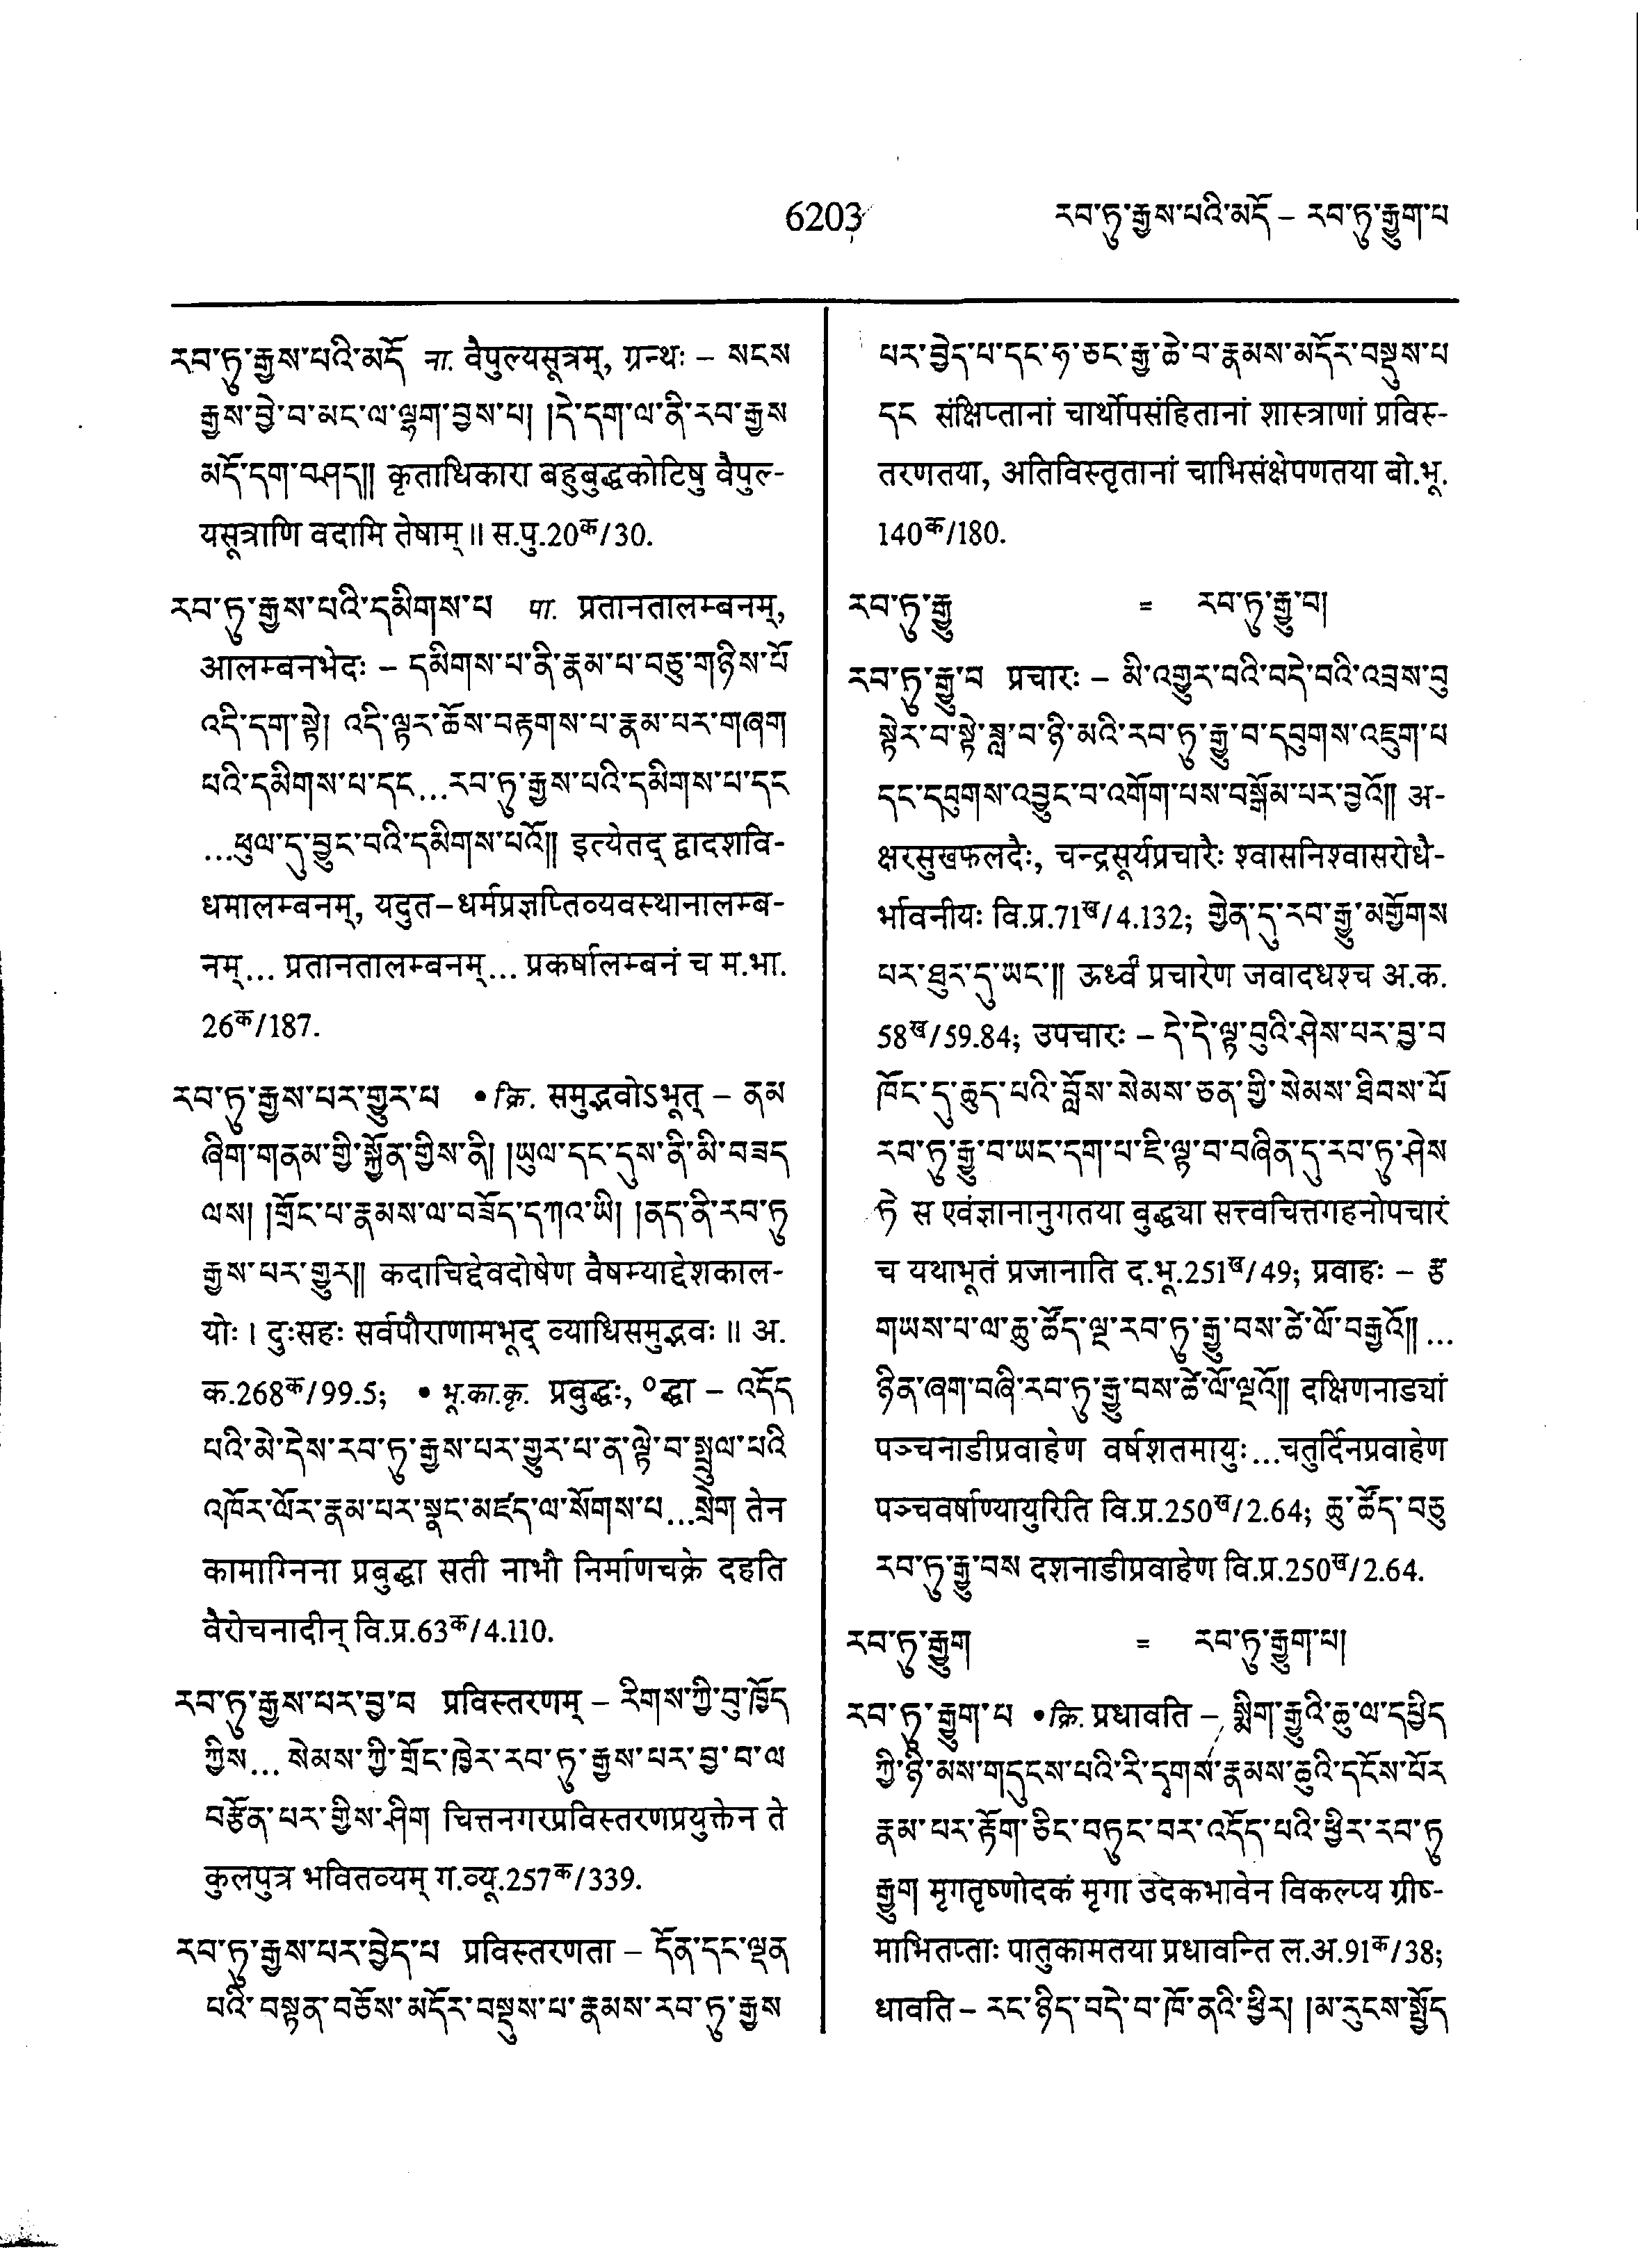 6203 རབ་ཏུ་རྒྱས་པའི་མདོ – རབ་ཏུ་རྒྱུག་པ
རབ་ཏུ་རྒྱས་པའི་མདོ ना. वैपुल्यसूत्रम्, ग्रन्थः – སངས
རྒྱས་བྱེ་བ་མང་ལ་ལྷག་བྱས་པ། །དེ་དག་ལ་ནི་རབ་རྒྱས
མདོ་དག་བཤད།། कृताधिकारा बहुबुद्धकोटिषु वैपुल-
यसूत्राणि वदामि तेषाम् ॥ स.पु.20क/30.
རབ་ཏུ་རྒྱས་པའི་དམིགས་པ पा. प्रतानतालम्बनम्,
आलम्बनभेदः – དམིགས་པ་ནི་རྣམ་པ་བཅུ་གཉིས་པོ
འདི་དག་སྟེ། འདི་ལྟར་ཆོས་བརྟགས་པ་རྣམ་པར་གཞག
པའི་དམིགས་པ་དང...རབ་ཏུ་རྒྱས་པའི་དམིགས་པ་དང
...ཕུལ་དུ་བྱུང་བའི་དམིགས་པའོ།། इत्येतद् द्वादशवि-
धमालम्बनम्, यदुत–धर्मप्रज्ञप्तिव्यवस्थानालम्ब-
नम्... प्रतानतालम्बनम्... प्रकर्षालम्बनं च म.भा.
26क/187.
རབ་ཏུ་རྒྱས་པར་གྱུར་པ •क्रि. समुद्भवोऽभूत् – ནམ
ཞིག་གནམ་གྱི་སྐྱོན་གྱིས་ནི། །ཡུལ་དང་དུས་ནི་མི་བཟད
ལས། །གྲོང་པ་རྣམས་ལ་བཟོད་དཀའ་ཡི། །ནད་ནི་རབ་ཏུ
རྒྱས་པར་གྱུར།། कदाचिद्देवदोषेण वैषम्याद्देशकाल-
योः । दुःसहः सर्वपौराणामभूद् व्याधिसमुद्भवः ॥ अ.
क.268क/99.5; • भू.का.कृ. प्रबुद्धः, ०द्धा – འདོད
པའི་མེ་དེས་རབ་ཏུ་རྒྱས་པར་གྱུར་པ་ན་ལྟེ་བ་སྤྲུལ་པའི
འཁོར་ལོར་རྣམ་པར་སྣང་མཛད་ལ་སོགས་པ...སྲེག तेन
कामाग्निना प्रबुद्धा सती नाभौ निर्माणचक्रे दहति
वैरोचनादीन् वि.प्र.63क/4.110.
རབ་ཏུ་རྒྱས་པར་བྱ་བ प्रविस्तरणम् – རིགས་ཀྱི་བུ་ཁྱོད
ཀྱིས... སེམས་ཀྱི་གྲོང་ཁྱེར་རབ་ཏུ་རྒྱས་པར་བྱ་བ་ལ
བརྩོན་པར་གྱིས་ཤིག चित्तनगरप्रविस्तरणप्रयुक्तेन ते
कुलपुत्र भवितव्यम् ग.व्यू.257क/339.
རབ་ཏུ་རྒྱས་པར་བྱེད་པ प्रविस्तरणता – དོན་དང་ལྡན
པའི་བསྟན་བཅོས་མདོར་བསྡུས་པ་རྣམས་རབ་ཏུ་རྒྱས
པར་བྱེད་པ་དང་ཧ་ཅང་རྒྱ་ཆེ་བ་རྣམས་མདོར་བསྡུས་པ
དང संक्षिप्तानां चार्थोपसंहितानां शास्त्राणां प्रविस्-
तरणतया, अतिविस्तृतानां चाभिसंक्षेपणतया बो.भू.
140क/180.
རབ་ཏུ་རྒྱུ = རབ་ཏུ་རྒྱུ་བ།
རབ་ཏུ་རྒྱུ་བ प्रचारः – མི་འགྱུར་བའི་བདེ་བའི་འབྲས་བུ
སྟེར་བ་སྟེ་ཟླ་བ་ཉི་མའི་རབ་ཏུ་རྒྱུ་བ་དབུགས་འཇུག་པ
དང་དབུགས་འབྱུང་བ་འགོག་པས་བསྒོམ་པར་བྱའོ།། अ-
क्षरसुखफलदैः, चन्द्रसूर्यप्रचारैः श्वासनिश्वासरोधै-
र्भावनीयः वि.प्र.71ख/4.132; གྱེན་དུ་རབ་རྒྱུ་མགྱོགས
པར་ཐུར་དུ་ཡང་།། ऊर्ध्वं प्रचारेण जवादधश्च अ.क.
58ख/59.84; उपचारः – དེ་དེ་ལྟ་བུའི་ཤེས་པར་བྱ་བ
ཁོང་དུ་ཆུད་པའི་བློས་སེམས་ཅན་གྱི་སེམས་ཐིབས་པོ
རབ་ཏུ་རྒྱུ་བ་ཡང་དག་པ་ཇི་ལྟ་བ་བཞིན་དུ་རབ་ཏུ་ཤེས
ཏེ स एवंज्ञानानुगतया बुद्ध्या सत्त्वचित्तगहनोपचारं
च यथाभूतं प्रजानाति द.भू.251ख/49; प्रवाहः – རྩ
གཡས་པ་ལ་ཆུ་ཚོད་ལྔ་རབ་ཏུ་རྒྱུ་བས་ཚེ་ལོ་བརྒྱའོ།། ...
ཉིན་ཞག་བཞི་རབ་ཏུ་རྒྱུ་བས་ཚེ་ལོ་ལྔའོ།། दक्षिणनाड्यां
पञ्चनाडीप्रवाहेण वर्षशतमायुः...चतुर्दिनप्रवाहेण
पञ्चवर्षाण्यायुरिति वि.प्र.250ख/2.64; ཆུ་ཚོད་བཅུ
རབ་ཏུ་རྒྱུ་བས दशनाडीप्रवाहेण वि.प्र.250ख/2.64.
རབ་ཏུ་རྒྱུག = རབ་ཏུ་རྒྱུག་པ།
རབ་ཏུ་རྒྱུག་པ •क्रि. प्रधावति – སྨིག་རྒྱུའི་ཆུ་ལ་དཔྱིད
ཀྱི་ཉི་མས་གདུངས་པའི་རི་དྭགས་རྣམས་ཆུའི་དངོས་པོར
རྣམ་པར་རྟོག་ཅིང་བཏུང་བར་འདོད་པའི་ཕྱིར་རབ་ཏུ
རྒྱུག मृगतृष्णोदकं मृगा उदकभावेन विकल्प्य ग्रीष्-
माभितप्ताः पातुकामतया प्रधावन्ति ल.अ.91क/38;
धावति – རང་ཉིད་བདེ་བ་ཁོ་ནའི་ཕྱིར། །མ་རུངས་སྤྱོད